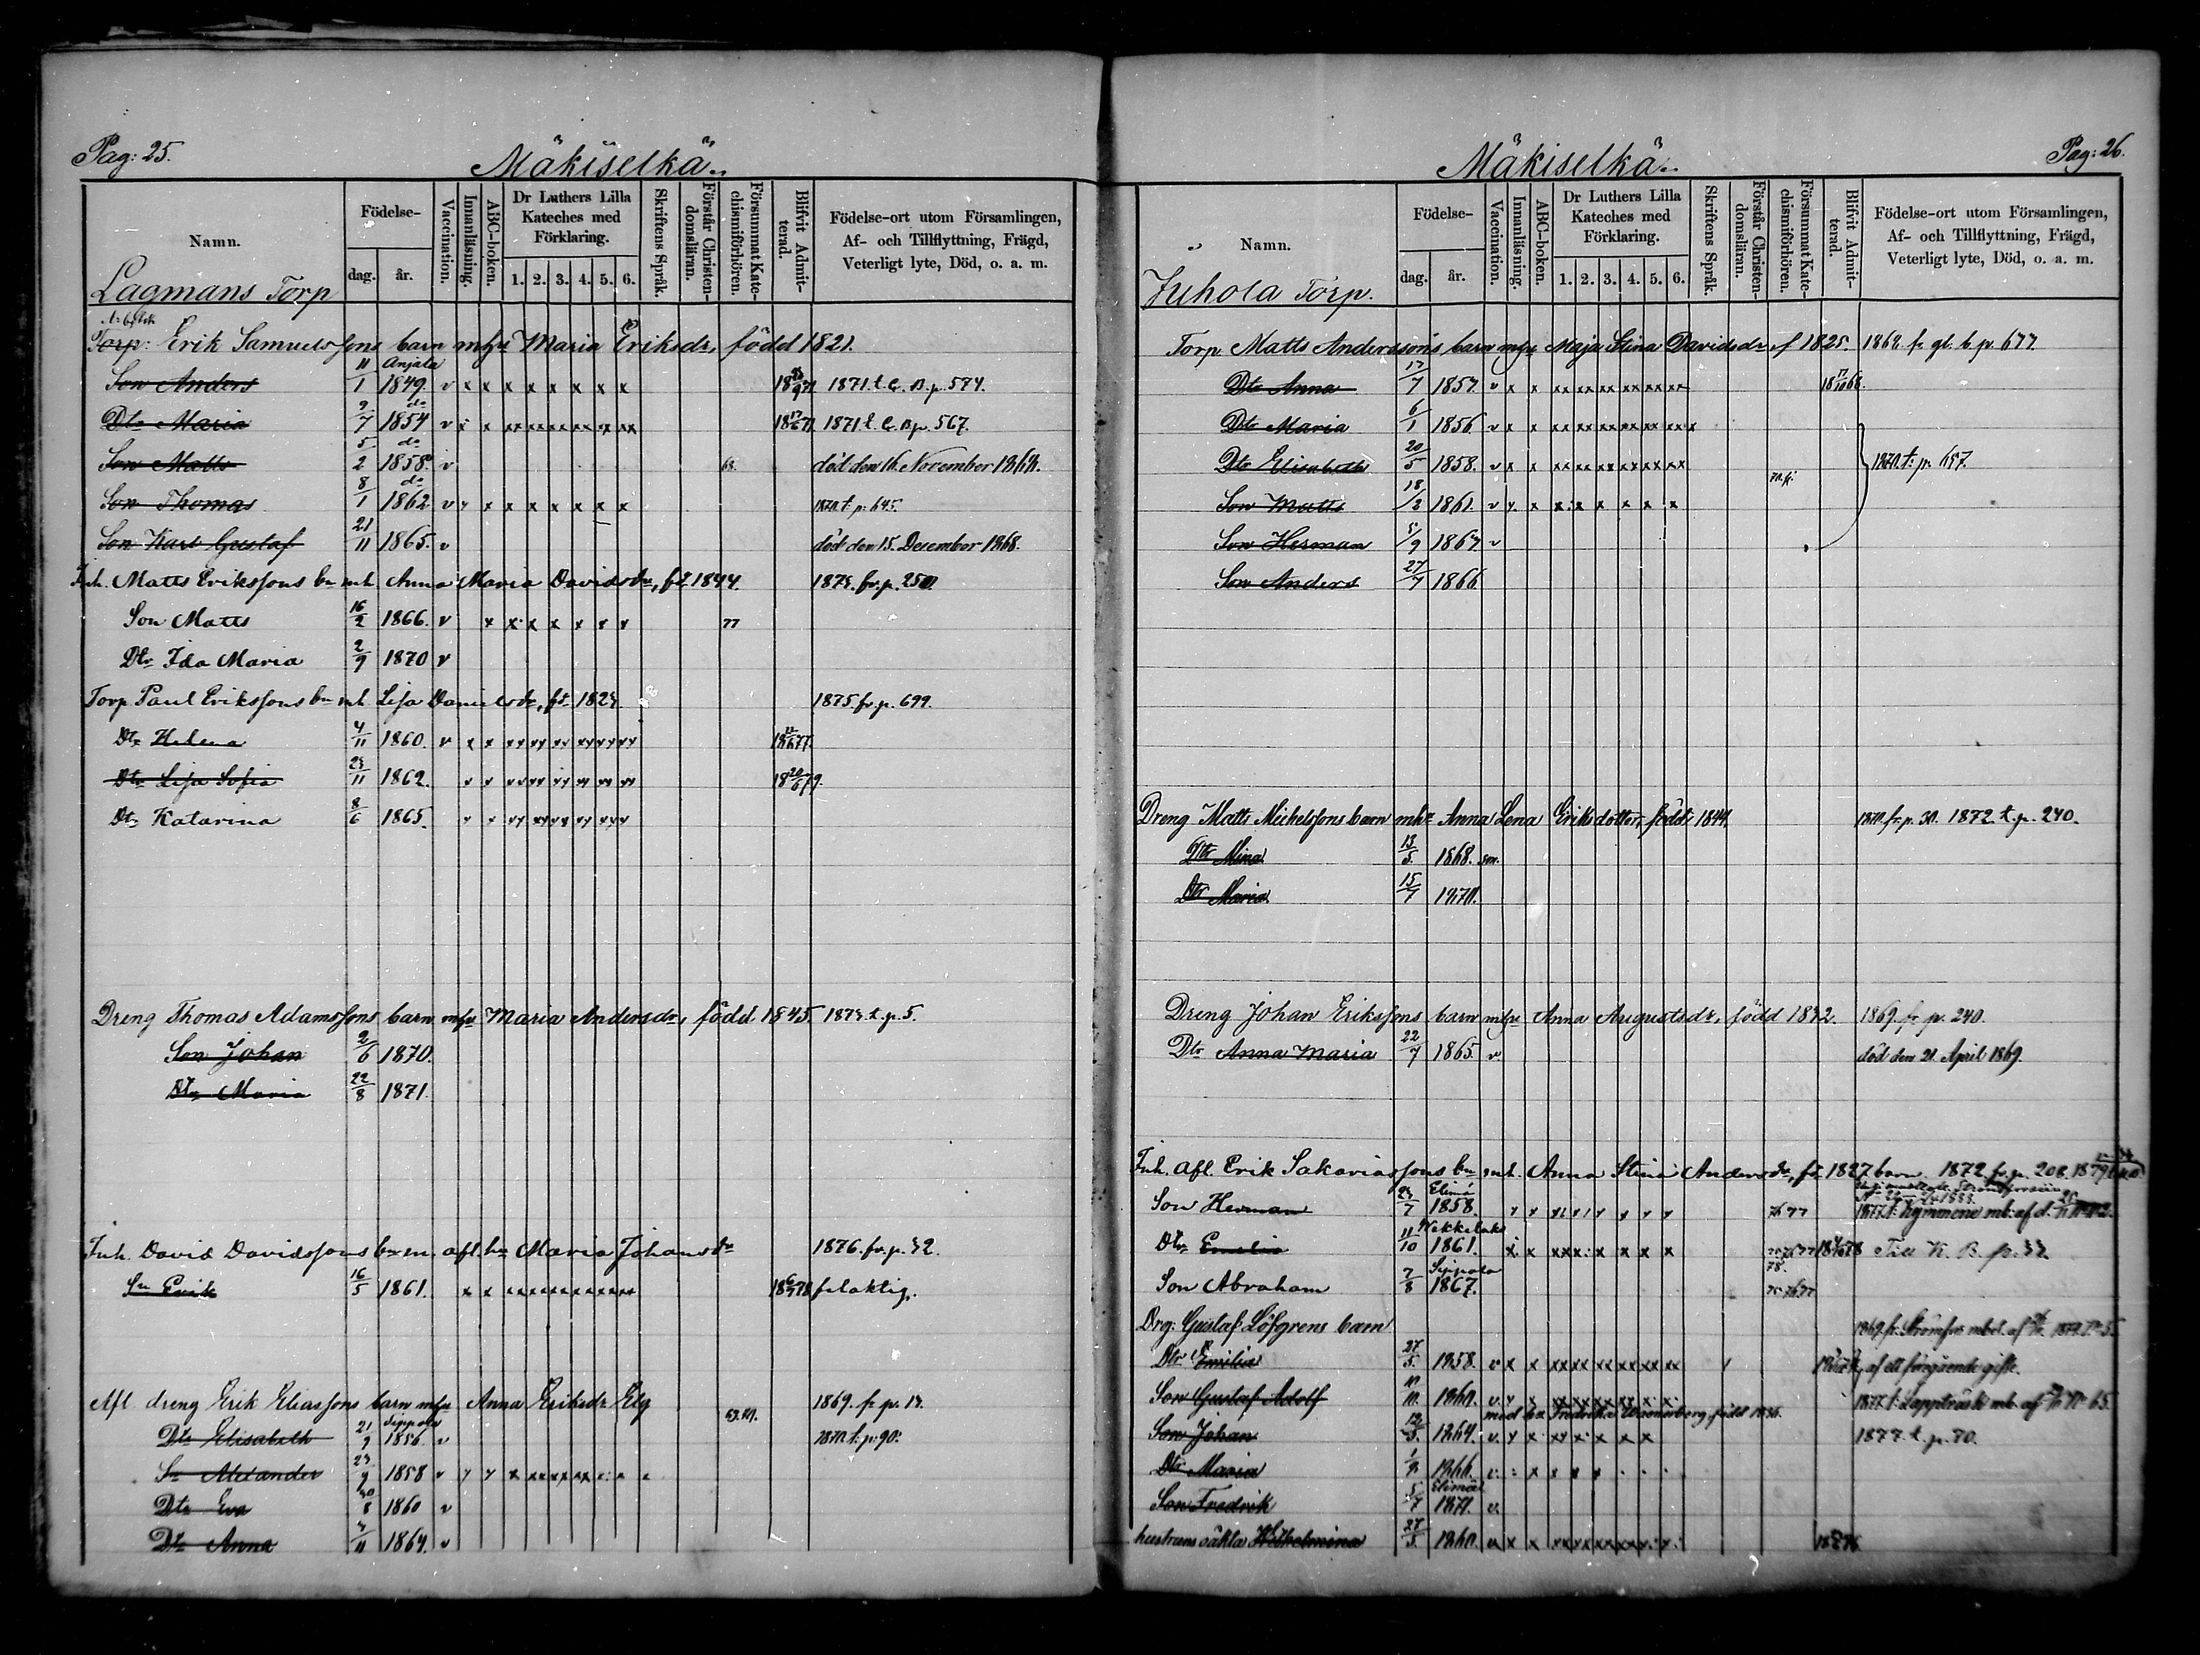 Pag: 25.
Mäkiselkä
Namn.
Födelse-
dag.
år.
Vaccination.
Innanläsning.
ABC-boken.
Dr Luthers Lilla Kateches med Förklaring.
1. 2. 3. 4. 5. 6.
Skriftens Språk.
Förstår Christendomsläran.
Försummat Katechismiförhören.
Blifvit Admitterad.
Födelse-ort utom Församlingen,
Af- och Tillflyttning, Frägd,
Veterligt lyte, Död, o. a. m.
Lagmans Torp
Torp: Erik Samuelssons barn m hu Maria Eriksdr, född 1821.
Anjala
Son Anders 11/1 1849. v x x x x x x x x 1871 t. C. B. p. 574.
do
Dtr Maria 9/7 1854 v x x xx xx xx xx xx xx 1871 t. C. B. p. 567.
do
Son Matts 5/2 1858. v 68. död den 16. November 1868.
do
Son Thomas 8/1 1862 v x x x x x x x x 1870. t. p. 645.
Son Karl Gustaf 21/11 1865. v död den 15. December 1868.
Inh. Matts Erikssons bn m h. Anna Maria Davidsdr, fd 1844. 1873. fr. p. 250.
Son Matts 16/2 1866. v x x x x x x x 77
Dtr Ida Maria 2/9 1870 v
Torp Paul Erikssons bn m h. Lisa Danielsdr, fd 1823 1875 fr. p. 699.
Dtr Helena 4/11 1860. v x x xx xx xx xx xx xx
Dtr Lisa Sofia 23/11 1862. x x xx xx xx xx xx xx
Dtr Katarina 8/6 1865. x x xx xx xx xx xx xx
Dreng Thomas Adamssons barn m hu Maria Andersdr, född 1845. 1873. t. p. 5.
Son Johan 2/6 1870.
Dtr Maria 22/8 1871.
Inh. David Davidssons bn m. afl. hu Maria Johansdr 1876. fr. p. 32.
Sn Erik 16/5 1861. x x xx xx xx xx xx xx felaktig.
Afl. dreng Erik Eliassons barn m hu Anna Eriksdr Elg 1869. fr. p. 13.
Sippola
Dtr Elisabeth 21/9 1856. v 1870. t. p. 90.
Sn Alexander 23/9 1858 v
Dtr Eva 30/8 1860 v
Dtr Anna 4/11 1864. v
Pag: 26.
Mäkiselkä
Namn.
Födelse-
dag.
år.
Vaccination.
Innanläsning.
ABC-boken.
Dr Luthers Lilla Kateches med Förklaring.
1. 2. 3. 4. 5. 6.
Skriftens Språk.
Förstår Christendomsläran.
Försummat Katechismiförhören.
Blifvit Admitterad.
Födelse-ort utom Församlingen,
Af- och Tillflyttning, Frägd,
Veterligt lyte, Död, o. a. m.
Juhola Torp.
Torp Matts Anderssons barn m hu Maja Stina Davidsdr f 1825. 1868 fr. gl. b. p. 677.
Dtr Anna 17/7 1851. v x x xx xx xx xx xx xx
Dtr Maria 6/1 1856. v x x xx xx xx xx xx xx x
Dtr Elisabeth 20/5 1858. v x x xx xx xx xx xx xx 1870. t. p. 657.
Son Matts 18/3 1861. v x x x x x x x x
Son Herman 5/9 1867. v
Son Anders 27/7 1866
Dreng Matts Michelssons barn m hu Anna Lena Eriksdotter, född 1844. 1870. fr. p. 30. 1872 t. p. 240.
Dtr Mina 13/5 1868.
Dtr Maria 15/7 1870.
Dreng Johan Erikssons barn m hu Anna Augustsdr, född 1832. 1869. fr. p. 240.
Dtr Anna Maria 22/7 1865. v död den 21. April 1869.
Inh. afl. Erik Sakariassons bn m h. Anna Stina Andersdr, fd 1827 barn 1872 fr. p. 208.
Elimä
Son Herman 23/7 1858. 76 77
Wekkelaks
Dtr Emelia 11/10 1861. Till K. B. p. 32
Sippola
Son Abraham 7/8 1867. 75 76 77
Drg: Gustaf Löfgrens barn 1869. fr. Strömfors
Dtr Emilia 27/5. 1858. v x x xx xx xx xx xx xx af ett föregående gifte.
Son Gustaf Adolf 1860. 1877 t. Lappträsk
med hu Fredrika född 1836.
Son Johan 12/5. 1864. v. 1877. t. p. 70.
Dtr Maria 1/9 1866.
Elimä
Son Fredrik 5/7 1871. v.
hustruns oäkta Wilhelmina 27/5. 1860.